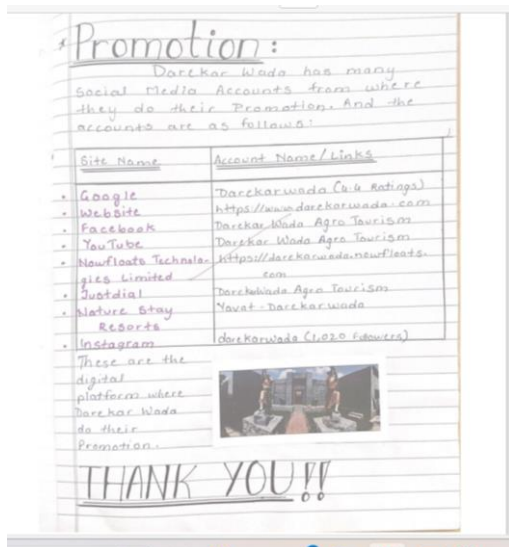 * Promotion:
Darekar Wada has many
Social Media Accounts from where
they do their Promotion. And the
accounts are as follows:
Site Name
Account Name/Links
• Google
Darekarwada (4.4 Ratings)
• Website
https://www.darekarwada.com
• Facebook
Darekar Wada Agro Tourism
• YouTube
Darekar Wada Agro Tourism
• Nowfloats Technolo-
gies Limited
https://darekarwada.nowfloats.
com
• Justdial
DarekarWada Agro Tourism
• Nature Stay
Resorts
Yavat - Darekarwada
• Instagram
darekarwada (1,020 followers)
These are the
digital
platform where
Darekar Wada
do their
Promotion.
THANK YOU!!